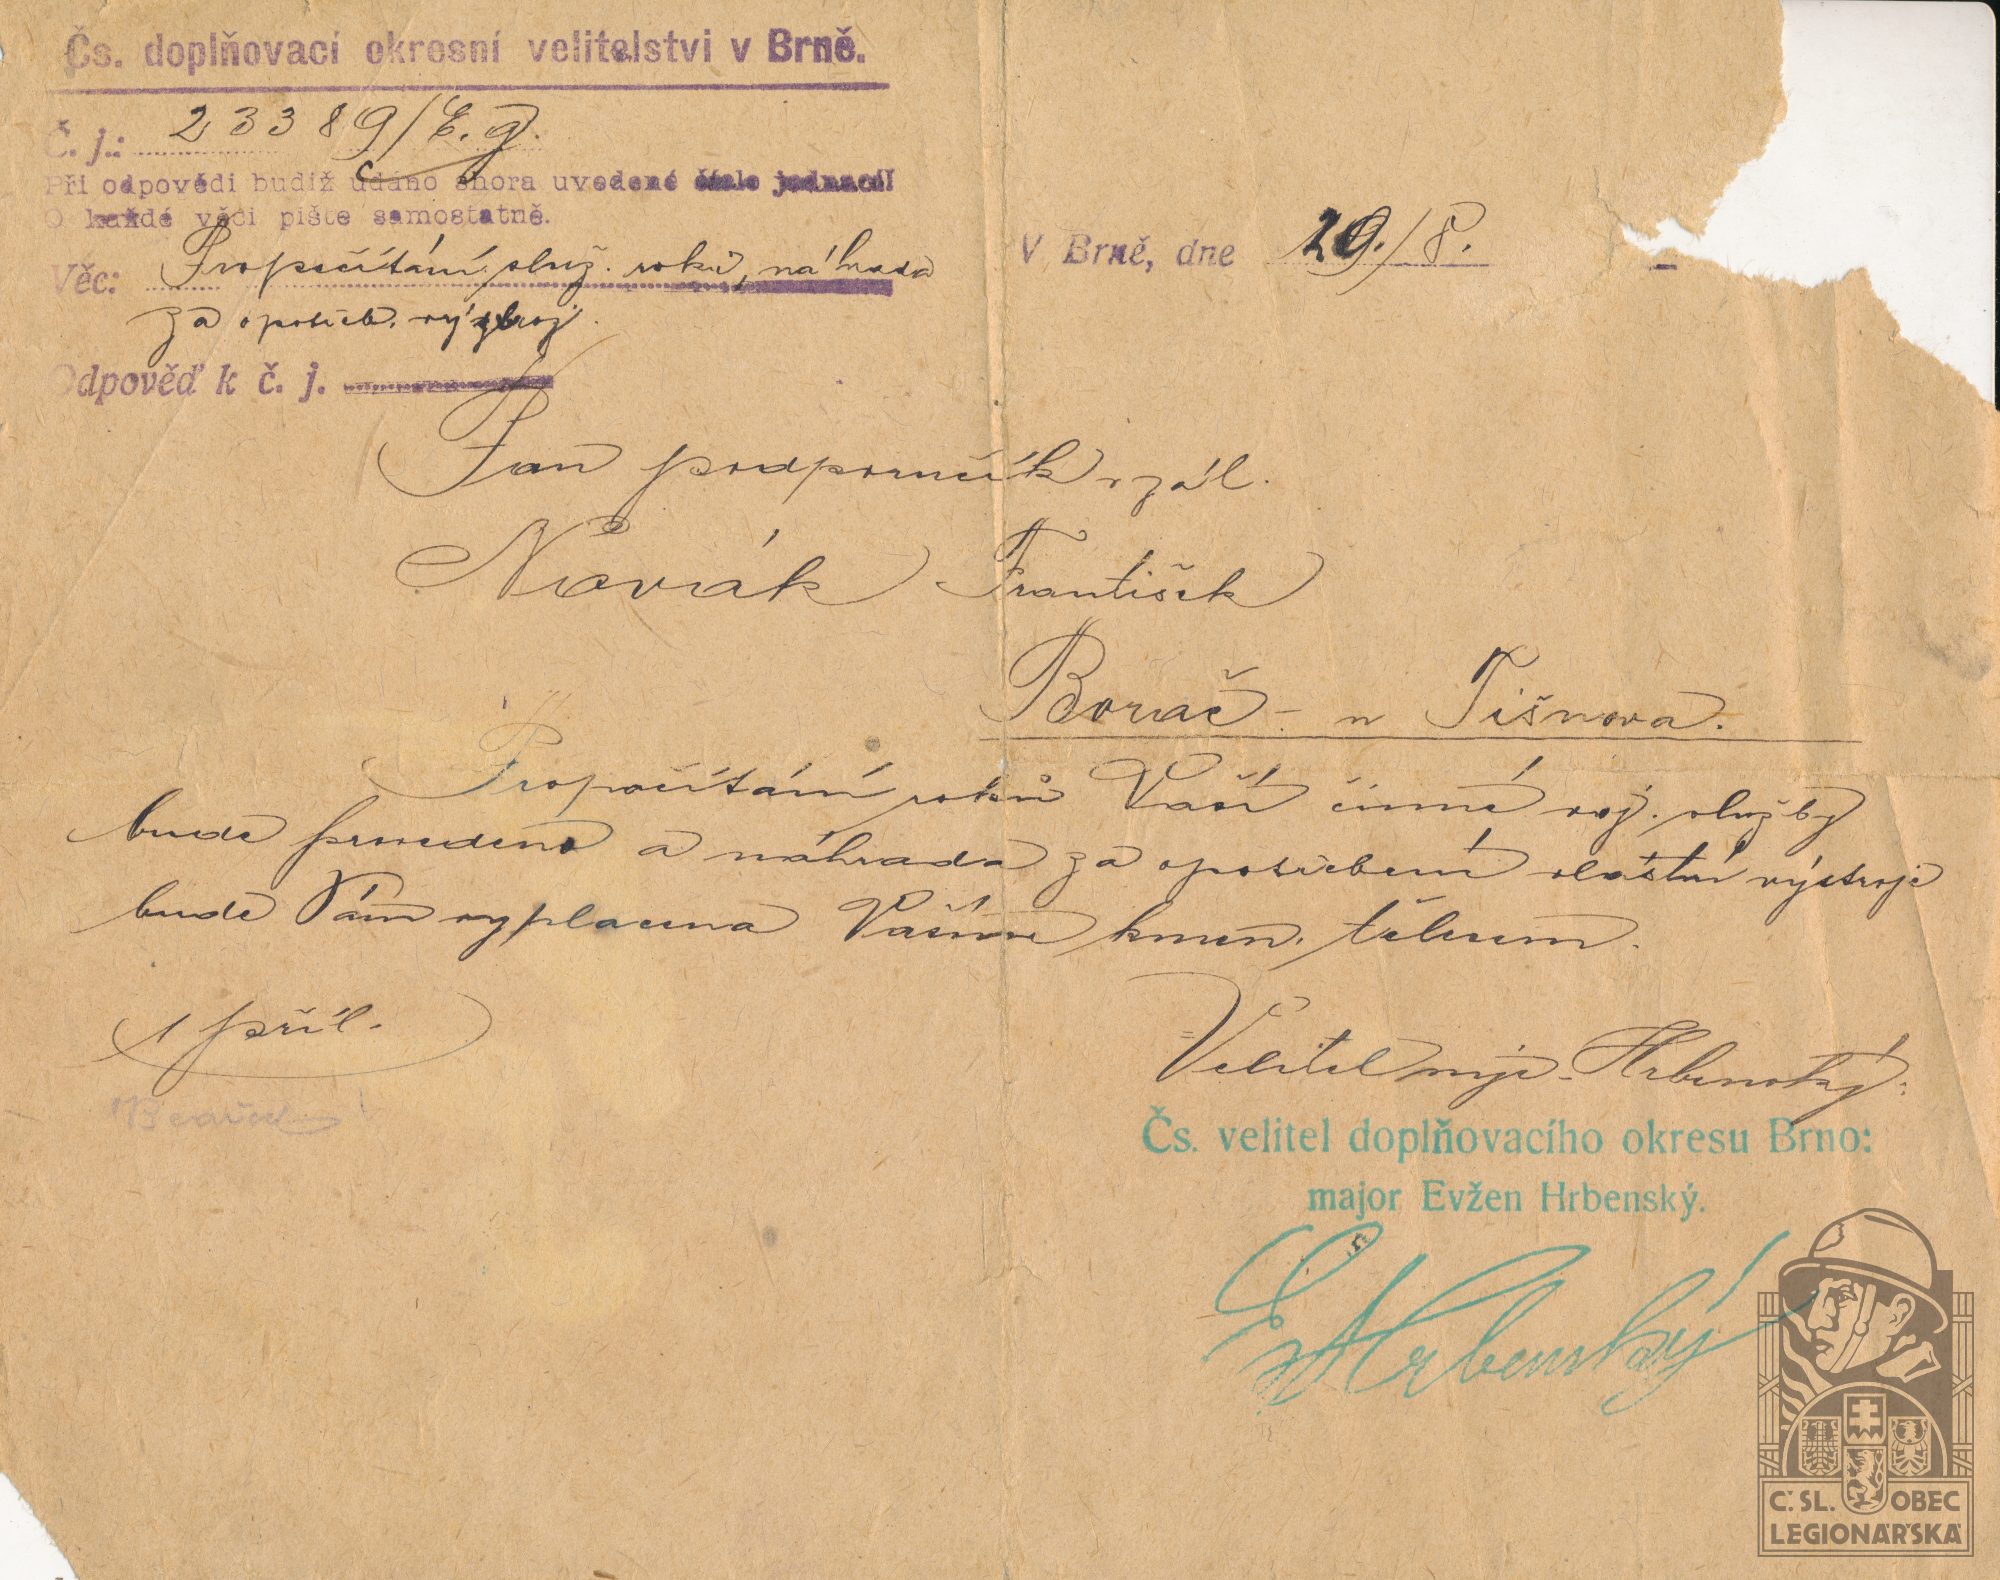 Čs. doplňovací okresní velitelstvi v Brně.
Č. j.: 23389/E.g.
Při odpovědi budiž udáno shora uvedené číslo jednací!
O každé věci pište samostatně.
Věc: Propočítání služ. roků, náhrada
za opotřeb. výstroj.
V Brně, dne 20./8.
Odpověď k č. j.
Pan podporučík v zál.
Novák František
Borač - u Tišnova.
Propočítání roků Vaší činné voj. služby
bude provedeno a náhrada za opotřebení vlastní výstroje
bude Vám vyplacena Vašim kmen. tělesem.
1 příl.
Velitel mjr. Hrbenský:
Čs. velitel doplňovacího okresu Brno:
major Evžen Hrbenský.
E Hrbenský
Č.SL. OBEC
LEGIONÁŘSKÁ